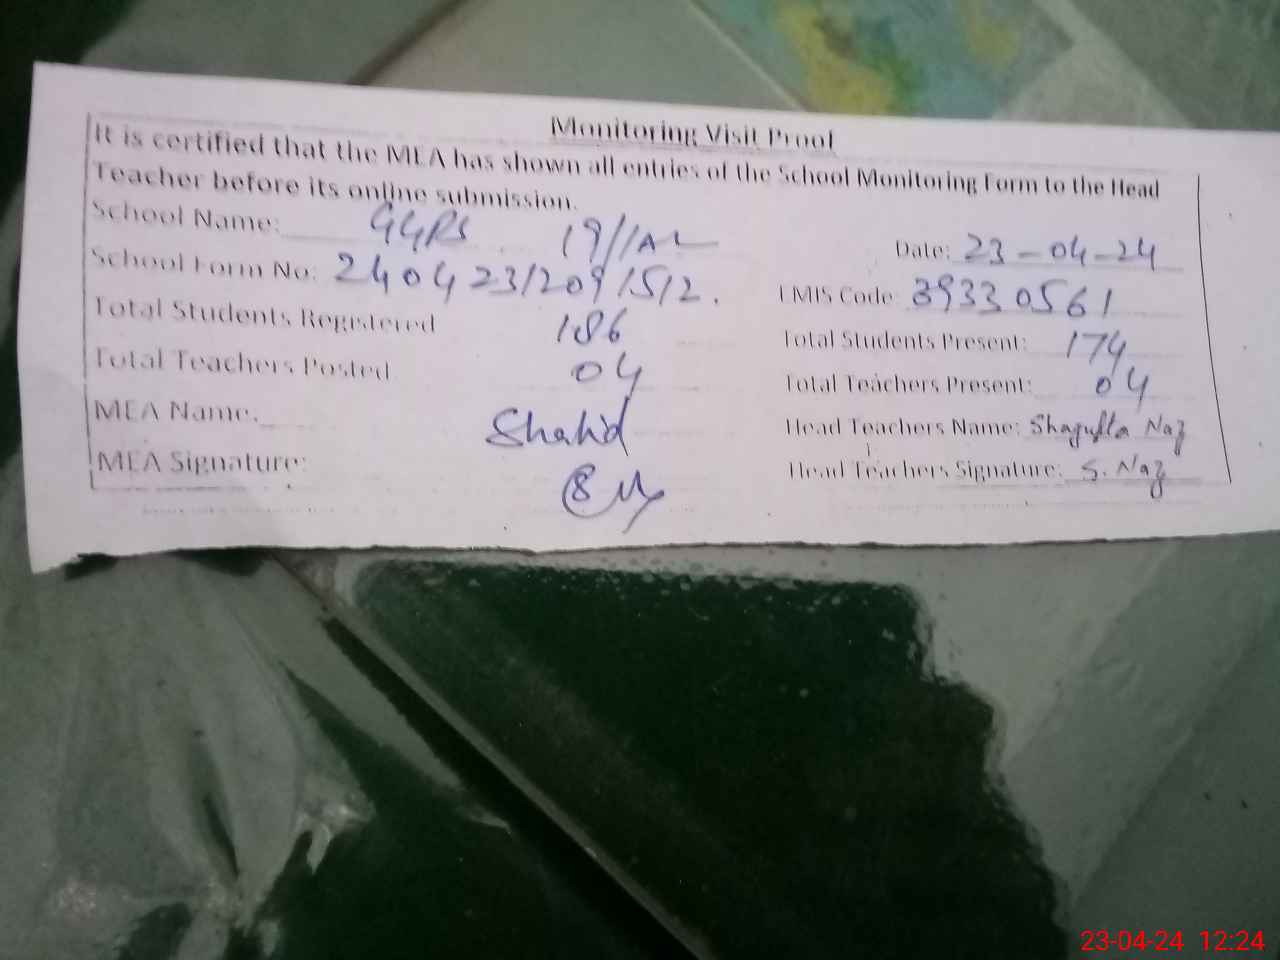 Monitoring Visit Proof
It is certified that the MEA has shown all entries of the School Monitoring Form to the Head
Teacher before its online submission.
School Name: GGPS 19/1AL Date: 23-04-24
School Form No: 240423120911512. EMIS Code: 39330561
Total Students Registered 186 Total Students Present: 174
Total Teachers Posted 04 Total Teachers Present: 04
MEA Name: Shahid Head Teachers Name: Shagufta Naz
MEA Signature: Head Teachers Signature: S. Naz
23-04-24 12:24